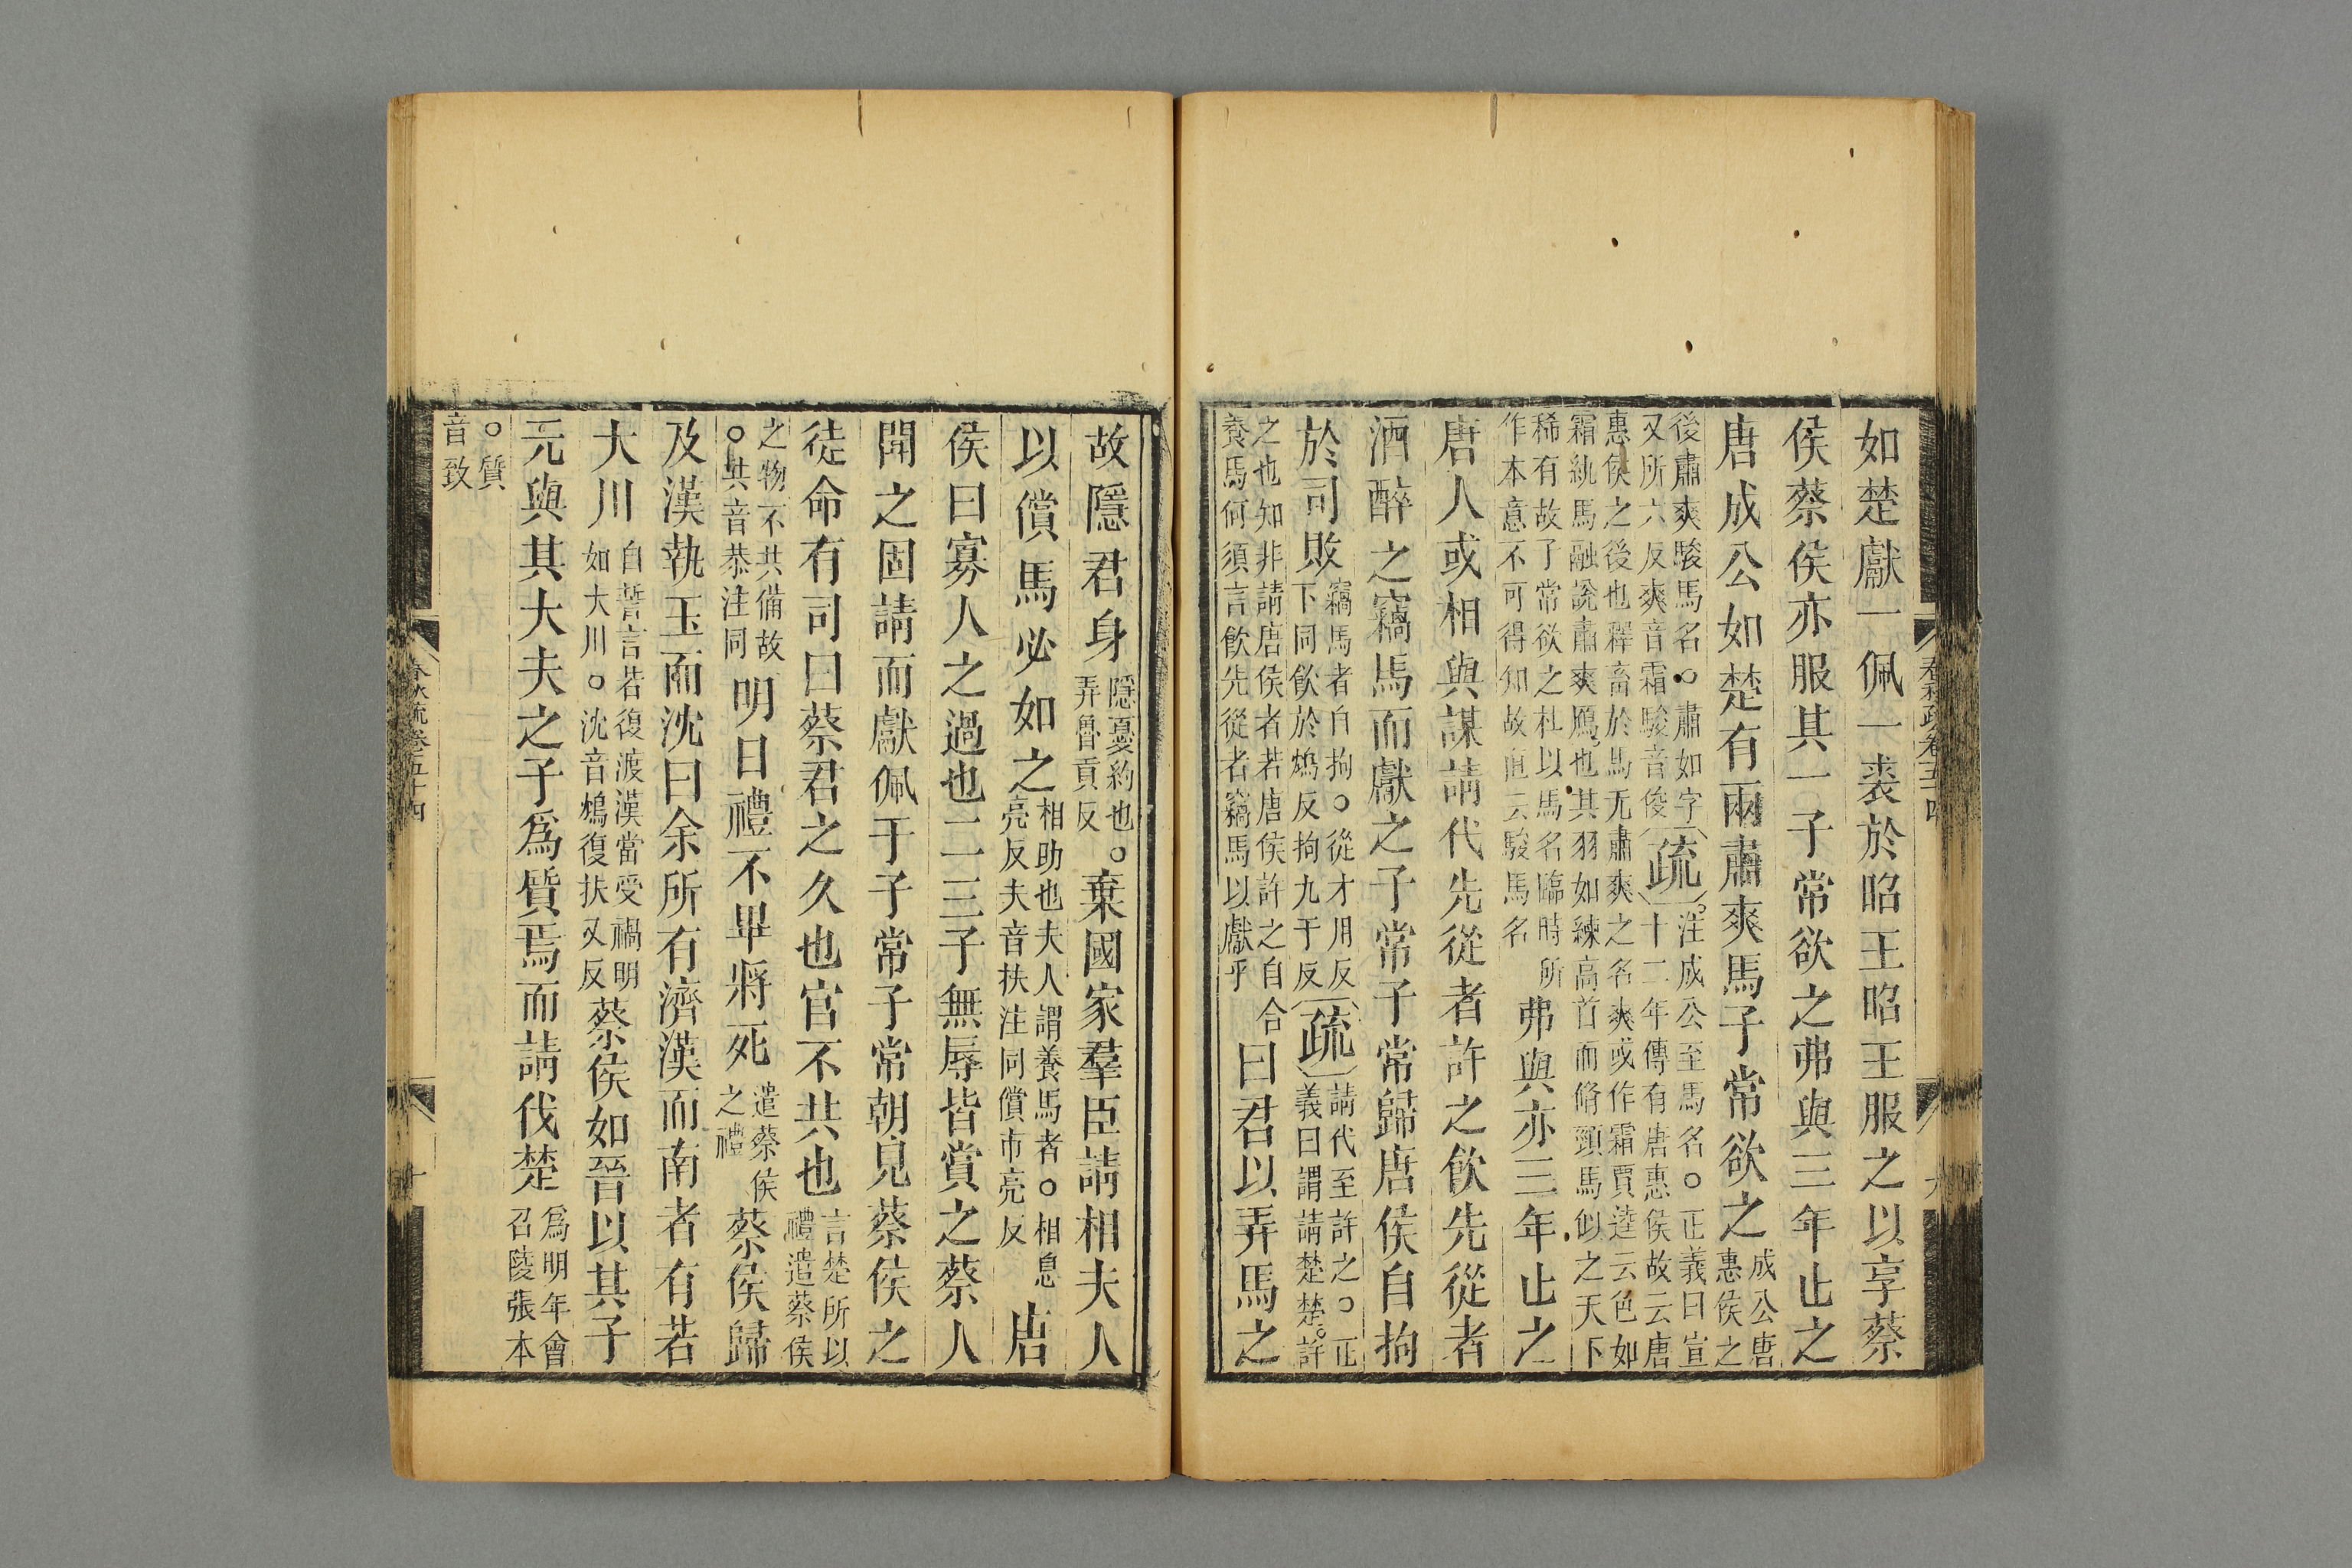 如楚獻一佩一裘於昭王昭王服之以享蔡
侯蔡侯亦服其一子常欲之弗與三年止之
唐成公如楚有兩肅爽馬子常欲之成公唐惠侯之
後肅爽駿馬名○肅如字又所六反爽音霜駿音俊疏注成公至馬名○正義曰宣十二年傳有唐惠侯故云唐
惠侯之後也釋畜於馬无肅爽之名爽或作霜賈逵云色如霜紈馬融說肅爽鴈也其羽如練高首而脩頸馬似之天下
稀有故子常欲之杜以馬名臨時所作本意不可得知故直云駿馬名弗與亦三年止之
唐人或相與謀請代先從者許之飲先從者
酒醉之竊馬而獻之子常子常歸唐侯自拘
於司敗竊馬者自拘○從才用反下同飲於鴆反拘九于反疏請代至許之○正義曰謂請楚楚許
之也知非請唐侯者若唐侯許之自合養馬何須言飲先從者竊馬以獻乎曰君以弄馬之
春秋疏卷五十四
九
故隱君身隱憂約也○弄魯貢反棄國家羣臣請相夫人
以償馬必如之相助也夫人謂養馬者○相息亮反夫音扶注同償市亮反唐
侯曰寡人之過也二三子無辱皆賞之蔡人
聞之固請而獻佩于子常子常朝見蔡侯之
徒命有司曰蔡君之久也官不共也言楚所以禮遣蔡侯
之物不共備故○共音恭注同明日禮不畢將死遣蔡侯之禮蔡侯歸
及漢執玉而沈曰余所有濟漢而南者有若
大川自誓言若復渡漢當受禍明如大川○沈音鴆復扶又反蔡侯如晉以其子
元與其大夫之子爲質焉而請伐楚爲明年會召陵張本
○質音致
春秋疏卷五十四
十